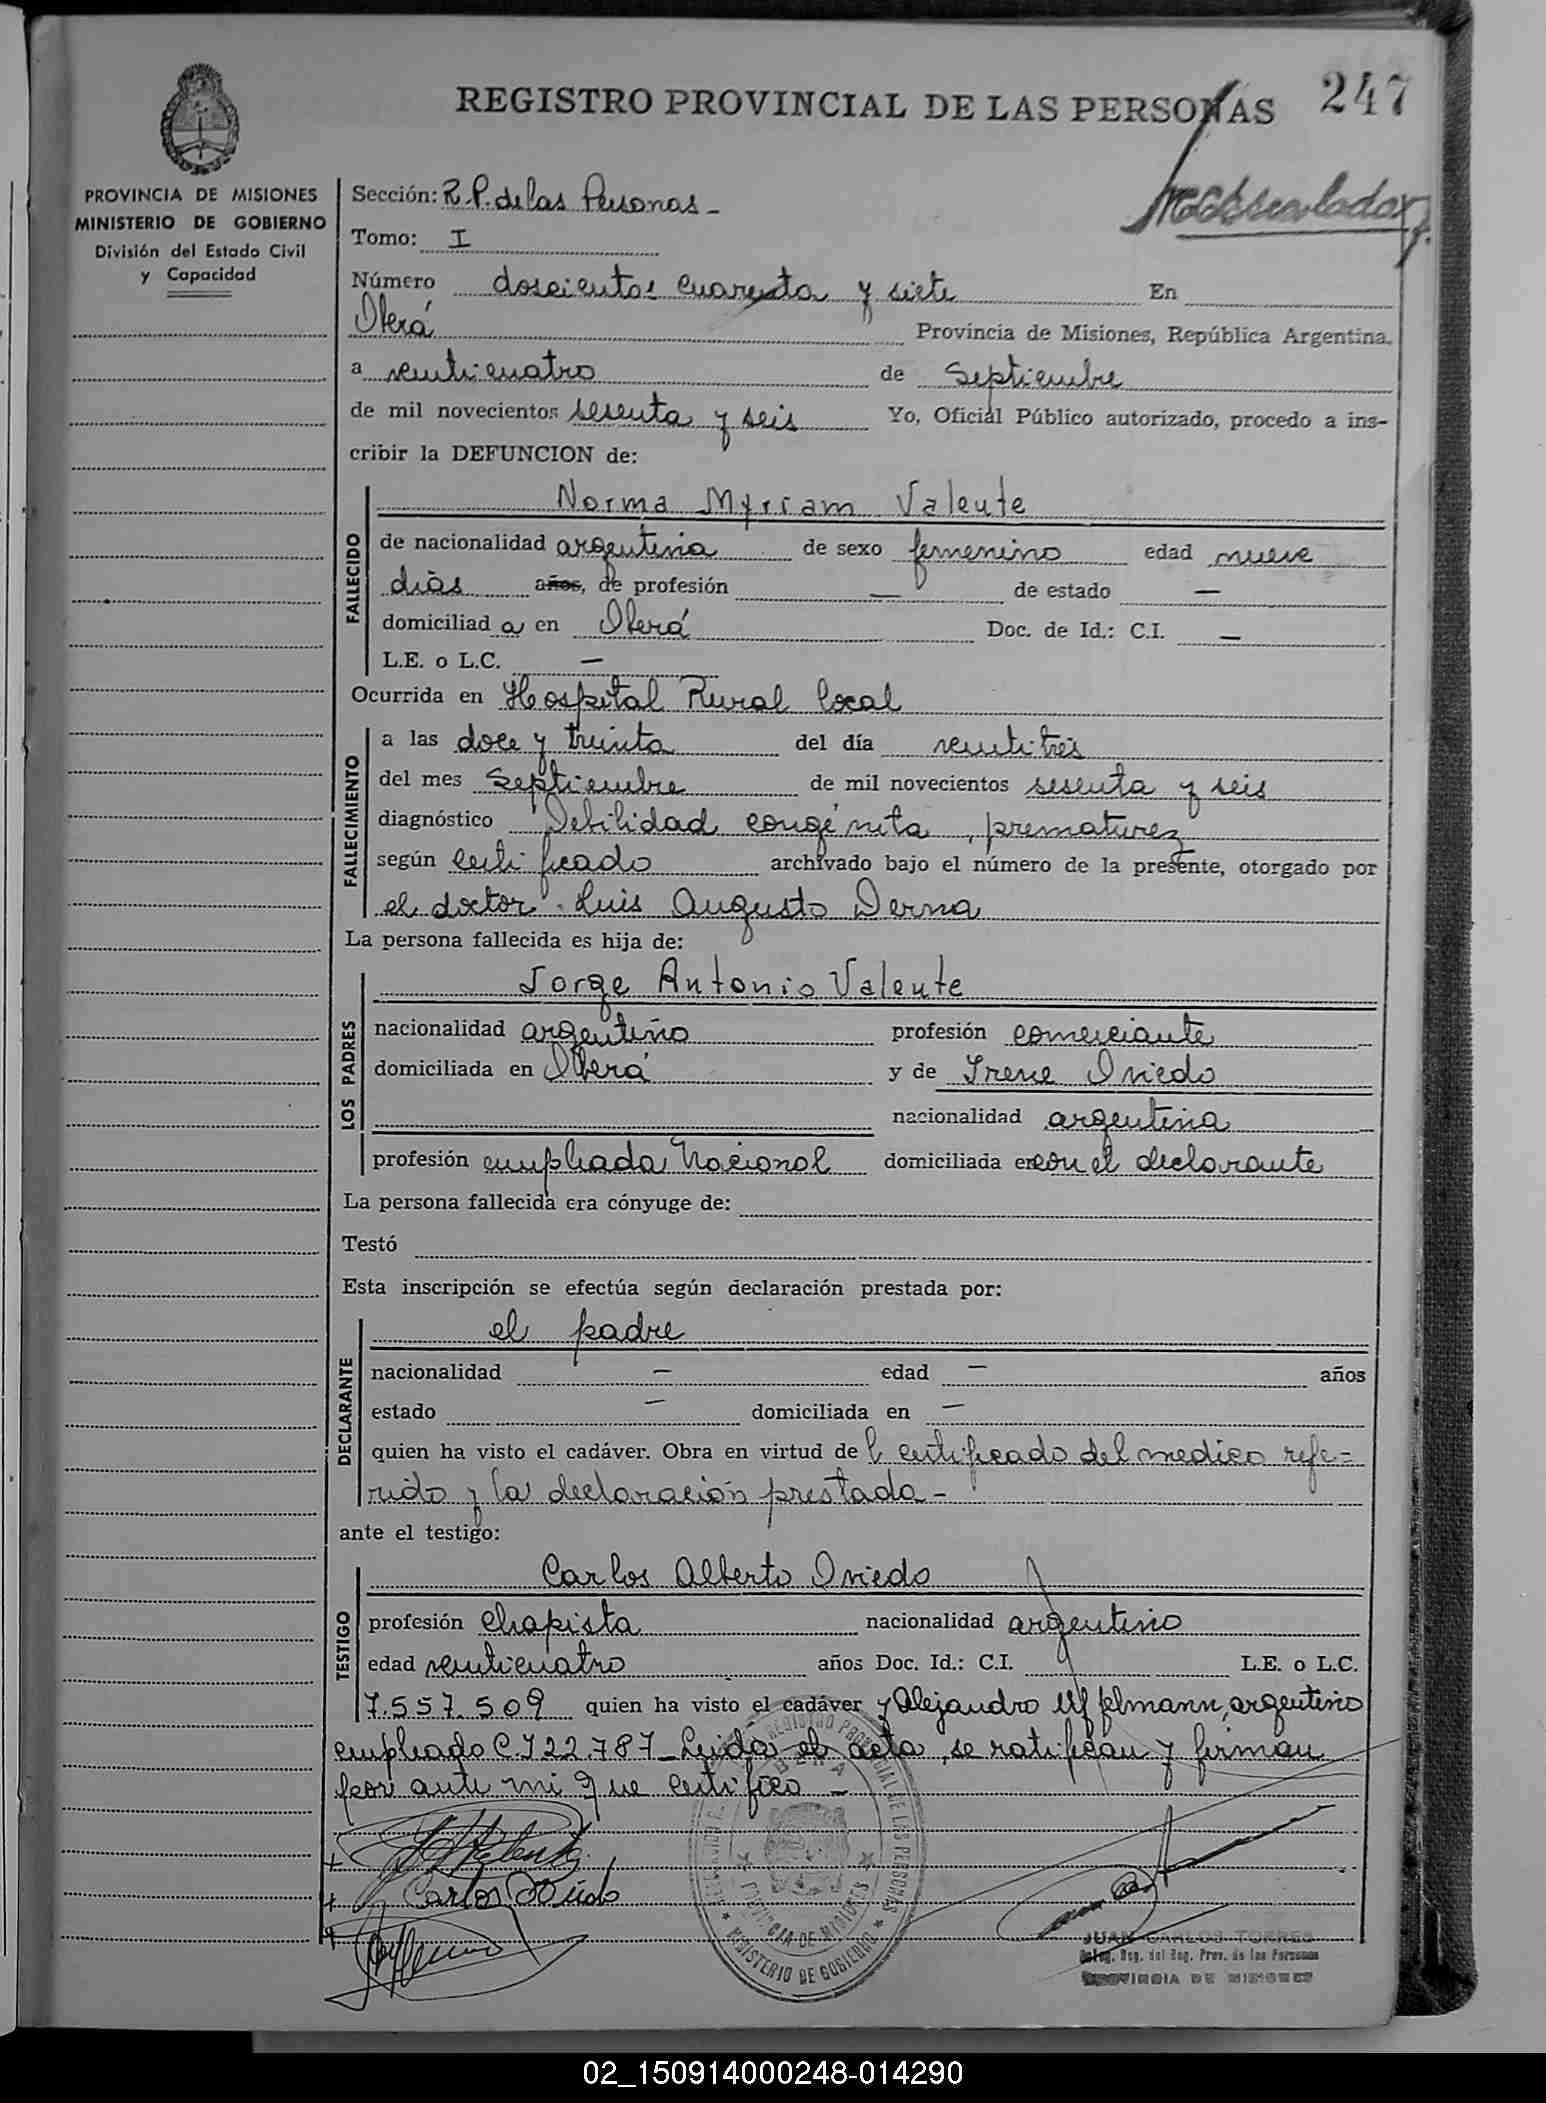 REGISTRO PROVINCIAL DE LAS PERSONAS 247
PROVINCIA DE MISIONES
MINISTERIO DE GOBIERNO
División del Estado Civil
y Capacidad
Sección: R.P. de las Personas -
Tomo: I
Número doscientos cuarenta y siete En
Oberá Provincia de Misiones, República Argentina,
a venticuatro de Septiembre
de mil novecientos sesenta y seis Yo, Oficial Público autorizado, procedo a ins-
cribir la DEFUNCION de:
FALLECIDO
Norma Myriam Valente
de nacionalidad argentina de sexo femenino edad nueve
días años, de profesión — de estado —
domiciliad a en Oberá Doc. de Id.: C.I. —
L.E. o L.C. —
Ocurrida en Hospital Rural local
FALLECIMIENTO
a las doce y treinta del día ventitrés
del mes Septiembre de mil novecientos sesenta y seis
diagnóstico Debilidad congénita, prematurez
según certificado archivado bajo el número de la presente, otorgado por
el doctor Luis Augusto Derna
La persona fallecida es hija de:
LOS PADRES
Jorge Antonio Valente
nacionalidad argentino profesión comerciante
domiciliada en Oberá y de Irene Oviedo
nacionalidad argentina
profesión empleada Nacional domiciliada en con el declarante
La persona fallecida era cónyuge de:
Testó
Esta inscripción se efectúa según declaración prestada por:
DECLARANTE
el padre
nacionalidad — edad — años
estado — domiciliada en —
quien ha visto el cadáver. Obra en virtud de l certificado del medico refe=
rido y la declaración prestada -
ante el testigo:
TESTIGO
Carlos Alberto Oviedo
profesión Chapista nacionalidad argentino
edad venticuatro años Doc. Id.: C.I. L.E. o L.C.
7.557.509 quien ha visto el cadáver y Alejandro argentino
empleado C I 22.787 - Leida el acta, se ratifican y firman
por ante mi que certifico -
Carlos Oviedo
REGISTRO PROVINCIAL DE LAS PERSONAS
OBERA
PROVINCIA DE MISIONES
MINISTERIO DE GOBIERNO
JUAN CARLOS TORRES
Prov. de las Personas
PROVINCIA DE MISIONES
02_150914000248-014290